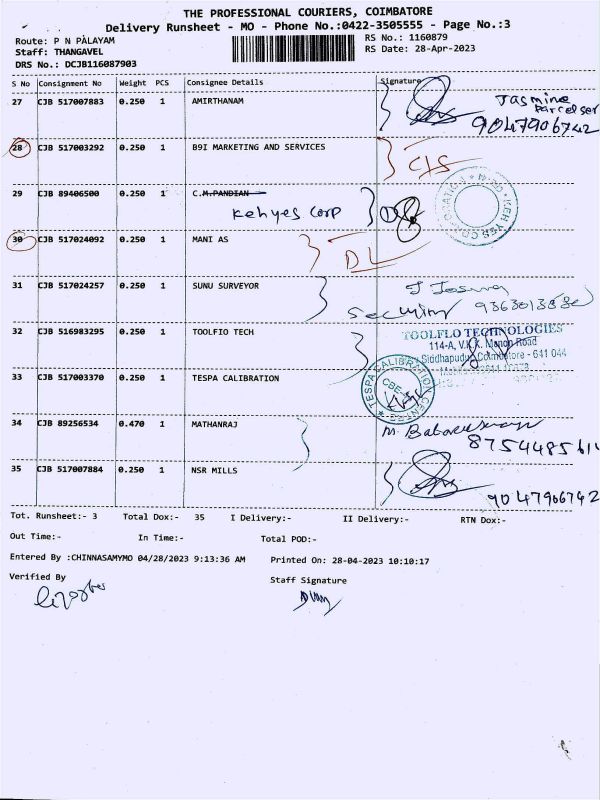 THE PROFESSIONAL COURIERS, COIMBATORE
Delivery Runsheet - MO - Phone No.:0422-3505555 - Page No.:3
Route: P N PALAYAM
RS No.: 1160879
Staff: THANGAVEL
RS Date: 28-Apr-2023
DRS No.: DCJB116087903
S No Consignment No Weight PCS Consignee Details Signature
27 CJB 517007883 0.250 1 AMIRTHANAM
Jasmine
Parcel set
9047906742
28 CJB 517003292 0.250 1 B9I MARKETING AND SERVICES
C/S
29 CJB 89406500 0.250 1 C.M.PANDIAN
Kehyes Corp
30 CJB 517024092 0.250 1 MANI AS
DL
31 CJB 517024257 0.250 1 SUNU SURVEYOR
32 CJB 516983295 0.250 1 TOOLFIO TECH
TOOLFLO TECHNOLOGIES
114-A, V.K.K. Menon Road
Siddhapudur, Coimbatore - 641 044
33 CJB 517003370 0.250 1 TESPA CALIBRATION
TESPA CALIBRATION CENTRE
CBE
34 CJB 89256534 0.470 1 MATHANRAJ
35 CJB 517007884 0.250 1 NSR MILLS
9047906742
Tot. Runsheet:- 3 Total Dox:- 35 I Delivery:- II Delivery:- RTN Dox:-
Out Time:- In Time:- Total POD:-
Entered By :CHINNASAMYMO 04/28/2023 9:13:36 AM Printed On: 28-04-2023 10:10:17
Verified By Staff Signature